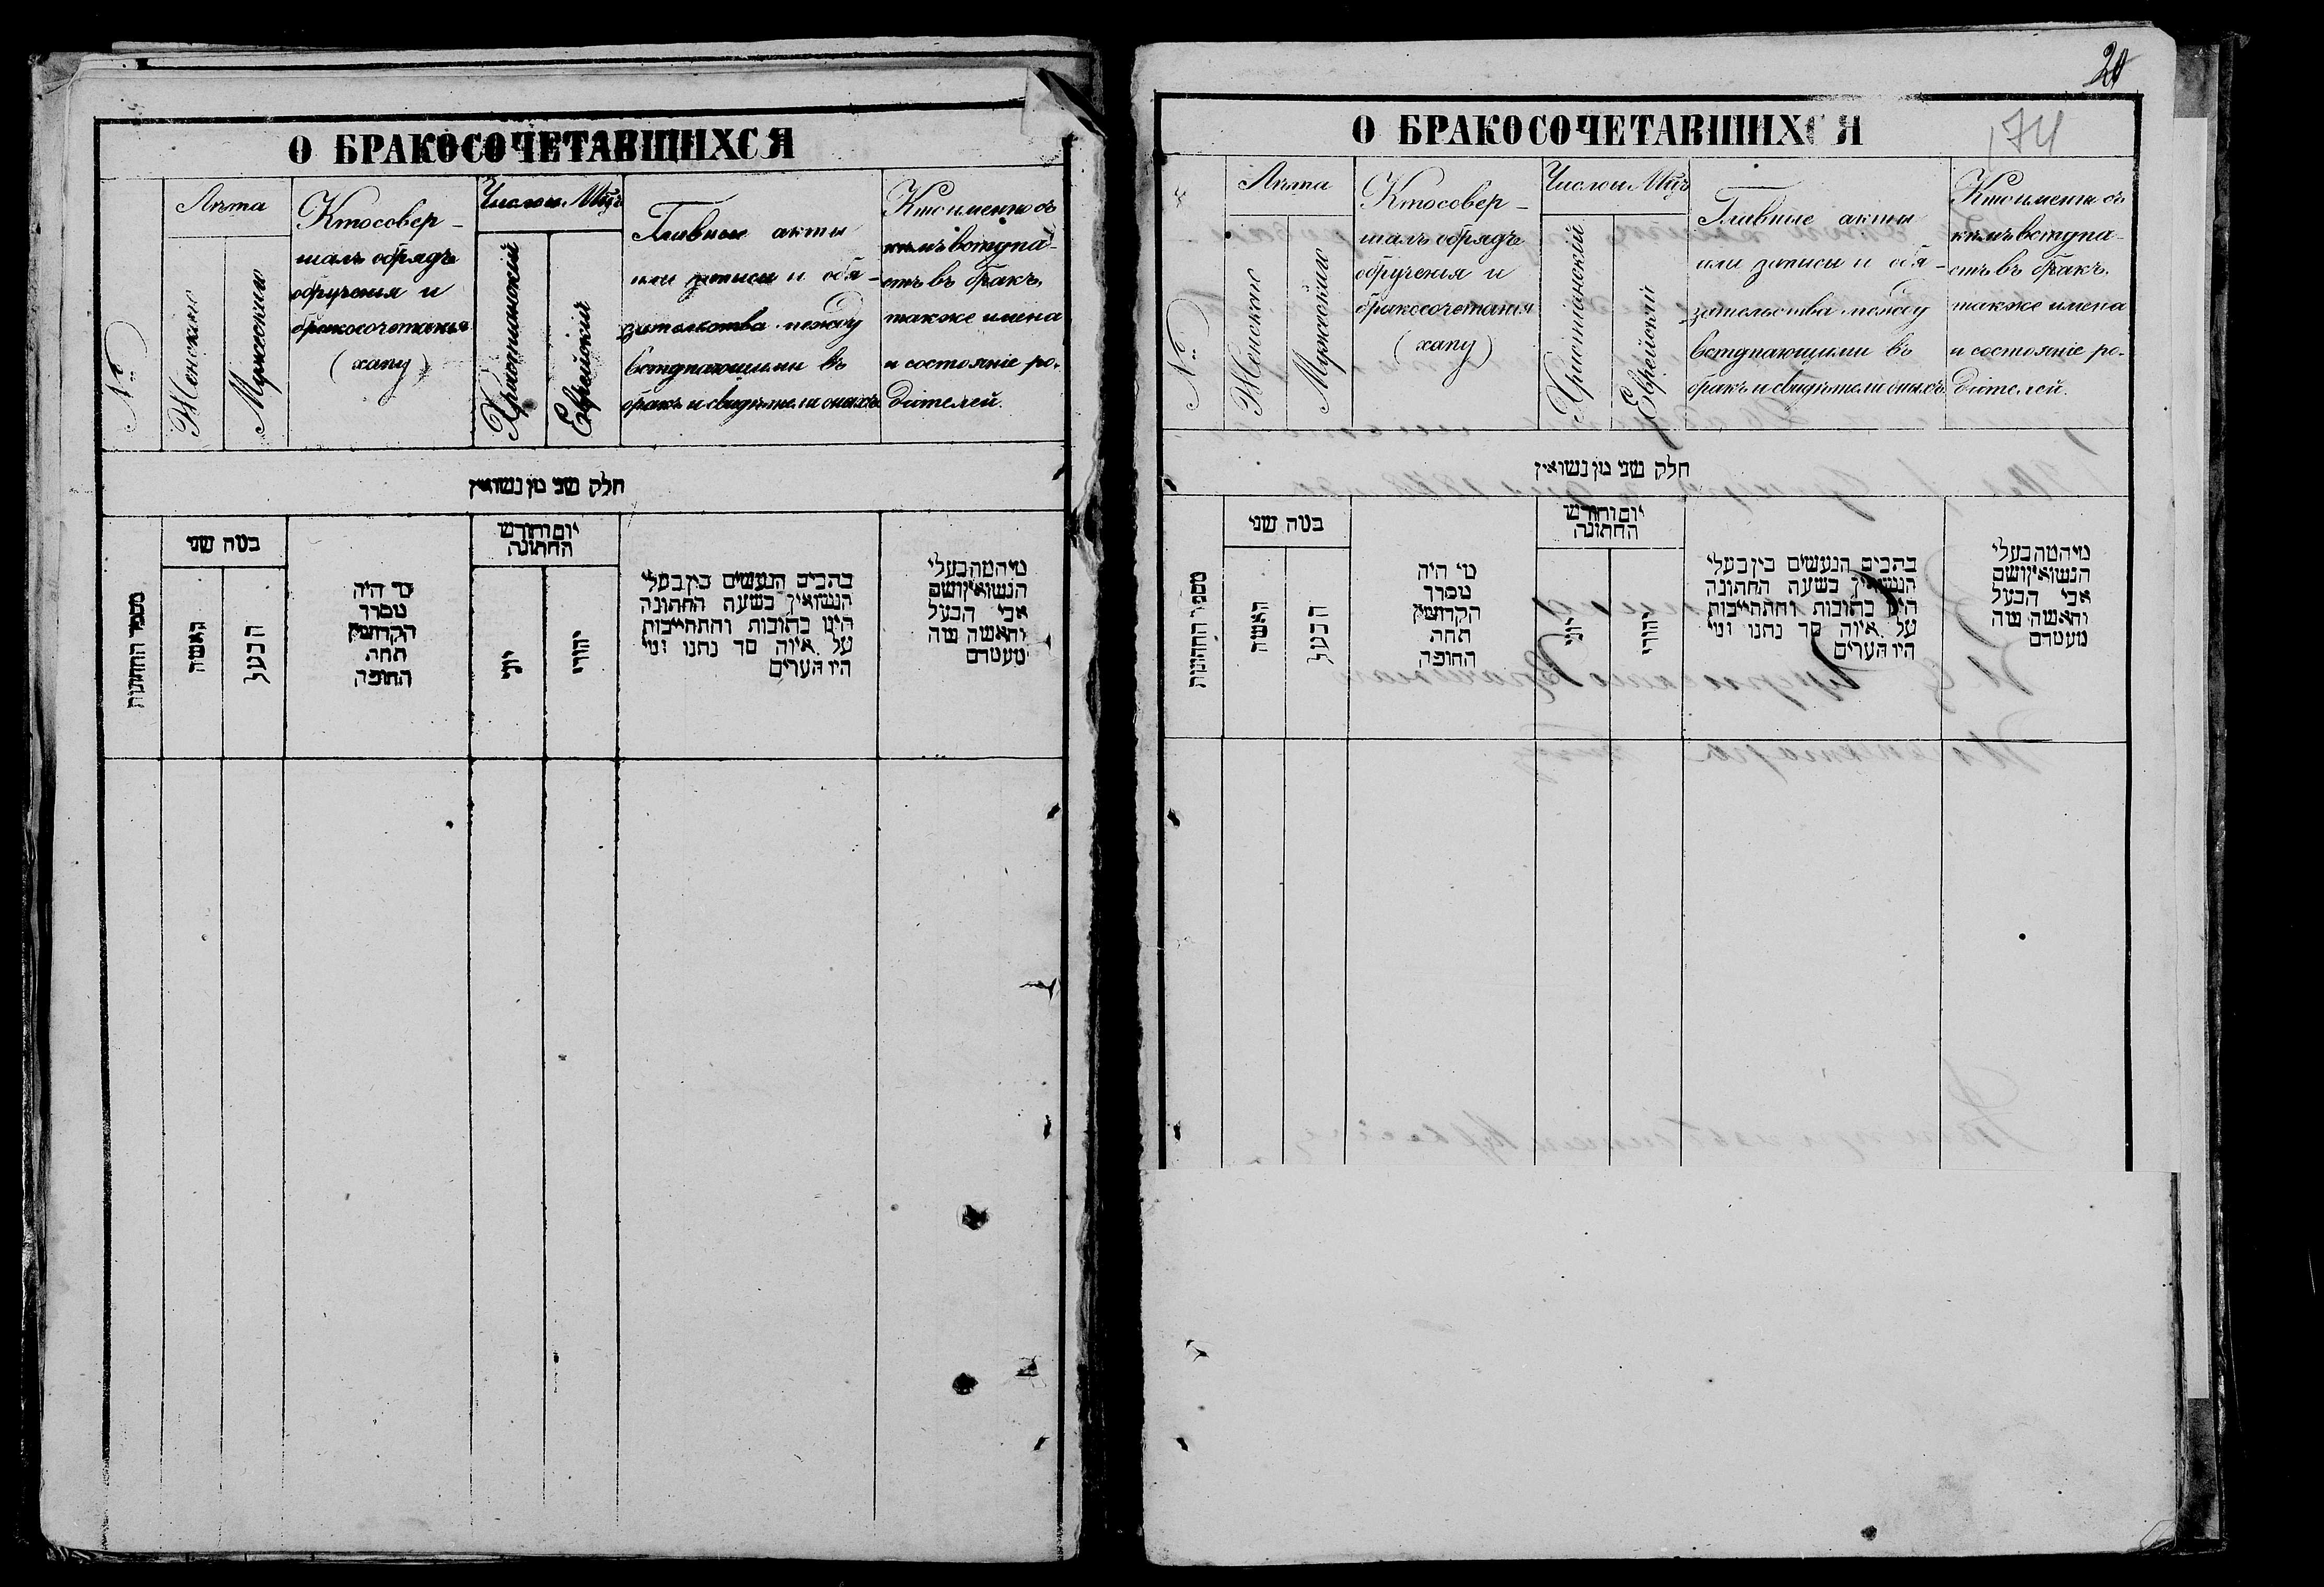 О БРАКОСОЧЕТАВШИХСЯ
№
Лѣта
Женскіе
Мужескіе
Кто совер-
шалъ обрядъ
обрученія и
бракосочетанія
(хапу)
Число и Мцъ
Христіанскій
Еврейскій
Главные акты
или записи и обя-
зательства между
вступающими въ
бракъ и свидѣтели оныхъ
Кто именно съ
кѣмъ вступа-
етъ въ бракъ,
также имена
и состояніе ро-
дителей.
חלק שני מן נשואין
מספר החתונות
במה שני
האשה
הבעל
מי היה
מסדר
הקדושין
תחת
החופה
יום וחודש
החתונה
יוני
יהודי
כתבים הנעשים בין בעלי
הנשואין בשעת החתונה
היינו כתובות והתחייבות
על איזה סך נתנו ומי
היו הערים
מי המה בעלי
הנשואין ושם
אבי הבעל
והאשה ומה
מעמדם
20
174
О БРАКОСОЧЕТАВШИХСЯ
№
Лѣта
Женскіе
Мужескіе
Кто совер-
шалъ обрядъ
обрученія и
бракосочетанія
(хапу)
Число и Мцъ
Христіанскій
Еврейскій
Главные акты
или записи и обя-
зательства между
вступающими въ
бракъ и свидѣтели оныхъ
Кто именно съ
кѣмъ вступа-
етъ въ бракъ,
также имена
и состояніе ро-
дителей.
חלק שני מן נשואין
מספר החתונות
במה שני
האשה
הבעל
מי היה
מסדר
הקדושין
תחת
החופה
יום וחודש
החתונה
יוני
יהודי
כתבים הנעשים בין בעלי
הנשואין בשעת החתונה
היינו כתובות והתחייבות
על איזה סך נתנו ומי
היו הערים
מי המה בעלי
הנשואין ושם
אבי הבעל
והאשה ומה
מעמדם